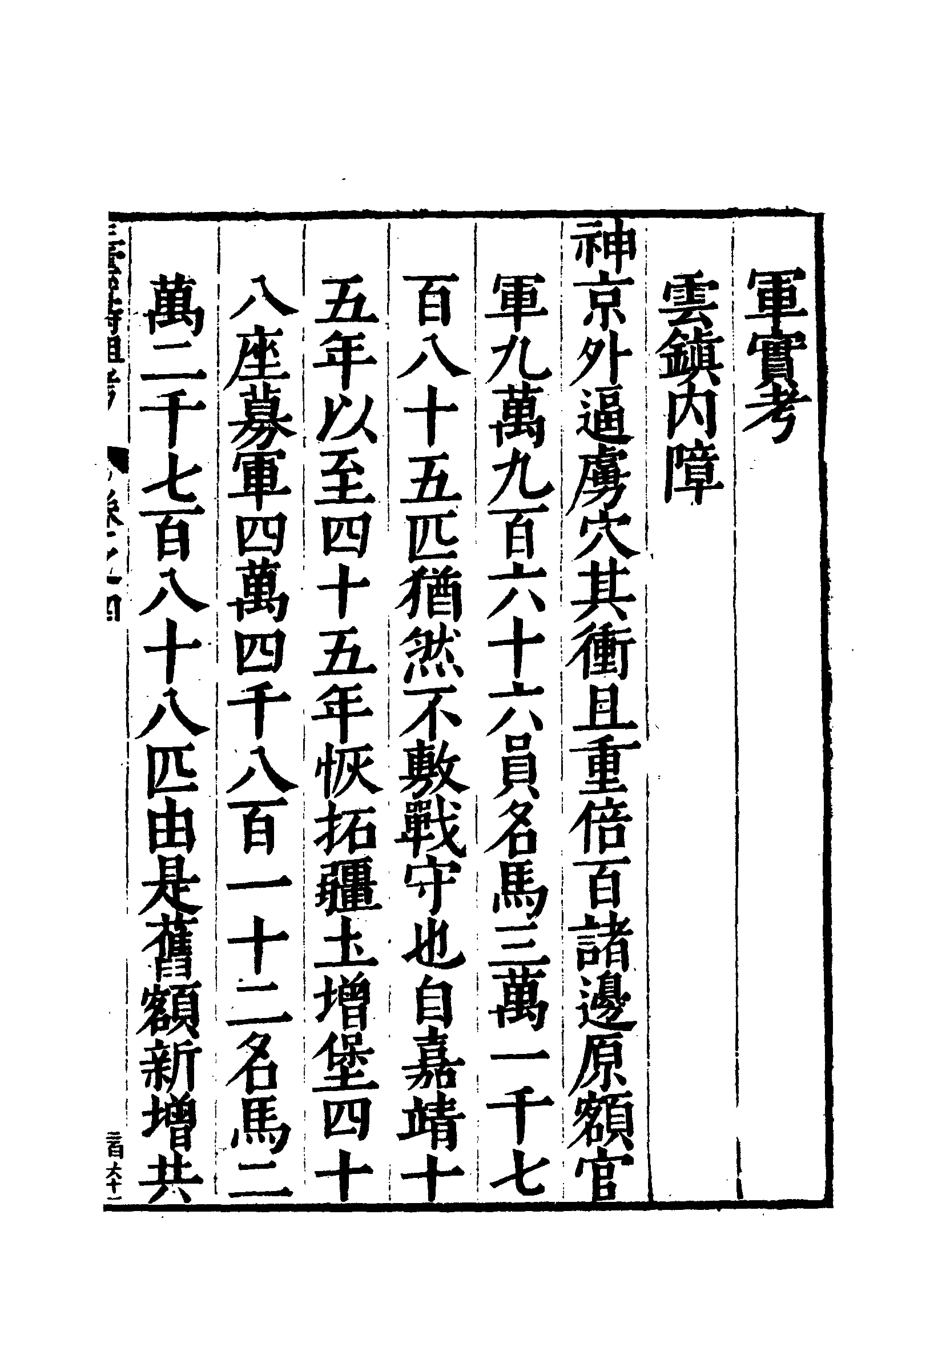 軍實考
雲鎮内障
神京外逼虜穴其衝且重倍百諸邊原額官
軍九萬九百六十六員名馬三萬一千七
百八十五匹猶然不敷戰守也自嘉靖十
五年以至四十五年恢拓疆土增堡四十
八座募軍四萬四千八百一十二名馬二
萬二千七百八十八匹由是舊額新增共
卷之四